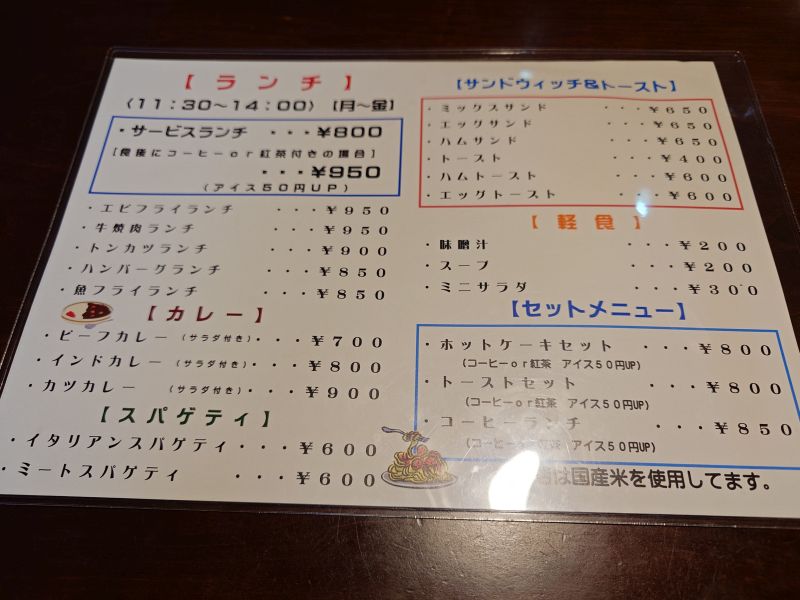 【ランチ】
〈11:30～14:00〉 [月～金]
・サービスランチ ・・・￥800
[食後にコーヒーor紅茶付きの場合]
・・・￥950
(アイス50円UP)
・エビフライランチ ・・・￥950
・牛焼肉ランチ ・・・￥950
・トンカツランチ ・・・￥900
・ハンバーグランチ ・・・￥850
・魚フライランチ ・・・￥850
【カレー】
・ビーフカレー (サラダ付き)・・・￥700
・インドカレー (サラダ付き)・・・￥800
・カツカレー (サラダ付き)・・・￥900
【スパゲティ】
・イタリアンスパゲティ・・・￥600
・ミートスパゲティ ・・・￥600
【サンドウィッチ&トースト】
・ミックスサンド ・・・￥650
・エッグサンド ・・・￥650
・ハムサンド ・・・￥650
・トースト ・・・￥400
・ハムトースト ・・・￥600
・エッグトースト ・・・￥600
【軽食】
・味噌汁 ・・・￥200
・スープ ・・・￥200
・ミニサラダ ・・・￥300
【セットメニュー】
・ホットケーキセット ・・・￥800
(コーヒーor紅茶 アイス50円UP)
・トーストセット ・・・￥800
(コーヒーor紅茶 アイス50円UP)
・コーヒーランチ ・・・￥850
(コーヒーor紅茶 アイス50円UP)
は国産米を使用してます。